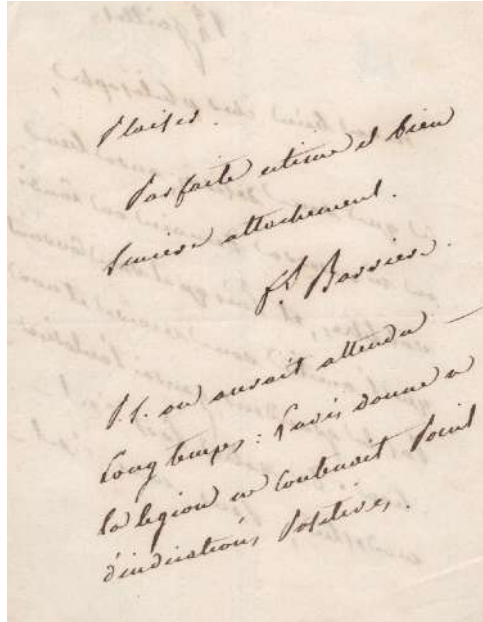 Plaisir.
Parfaite estime et bien
sincere attachement.
fs Barriere.
P.S. on aurait attendu
longtemps: l'avis donné a
la legion ne contenait point
d'indications positives.